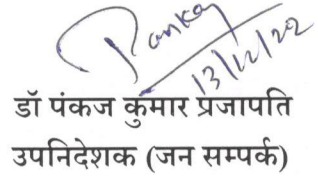 Pankaj
13/12/22
डॉ पंकज कुमार प्रजापति
उपनिदेशक (जन सम्पर्क)